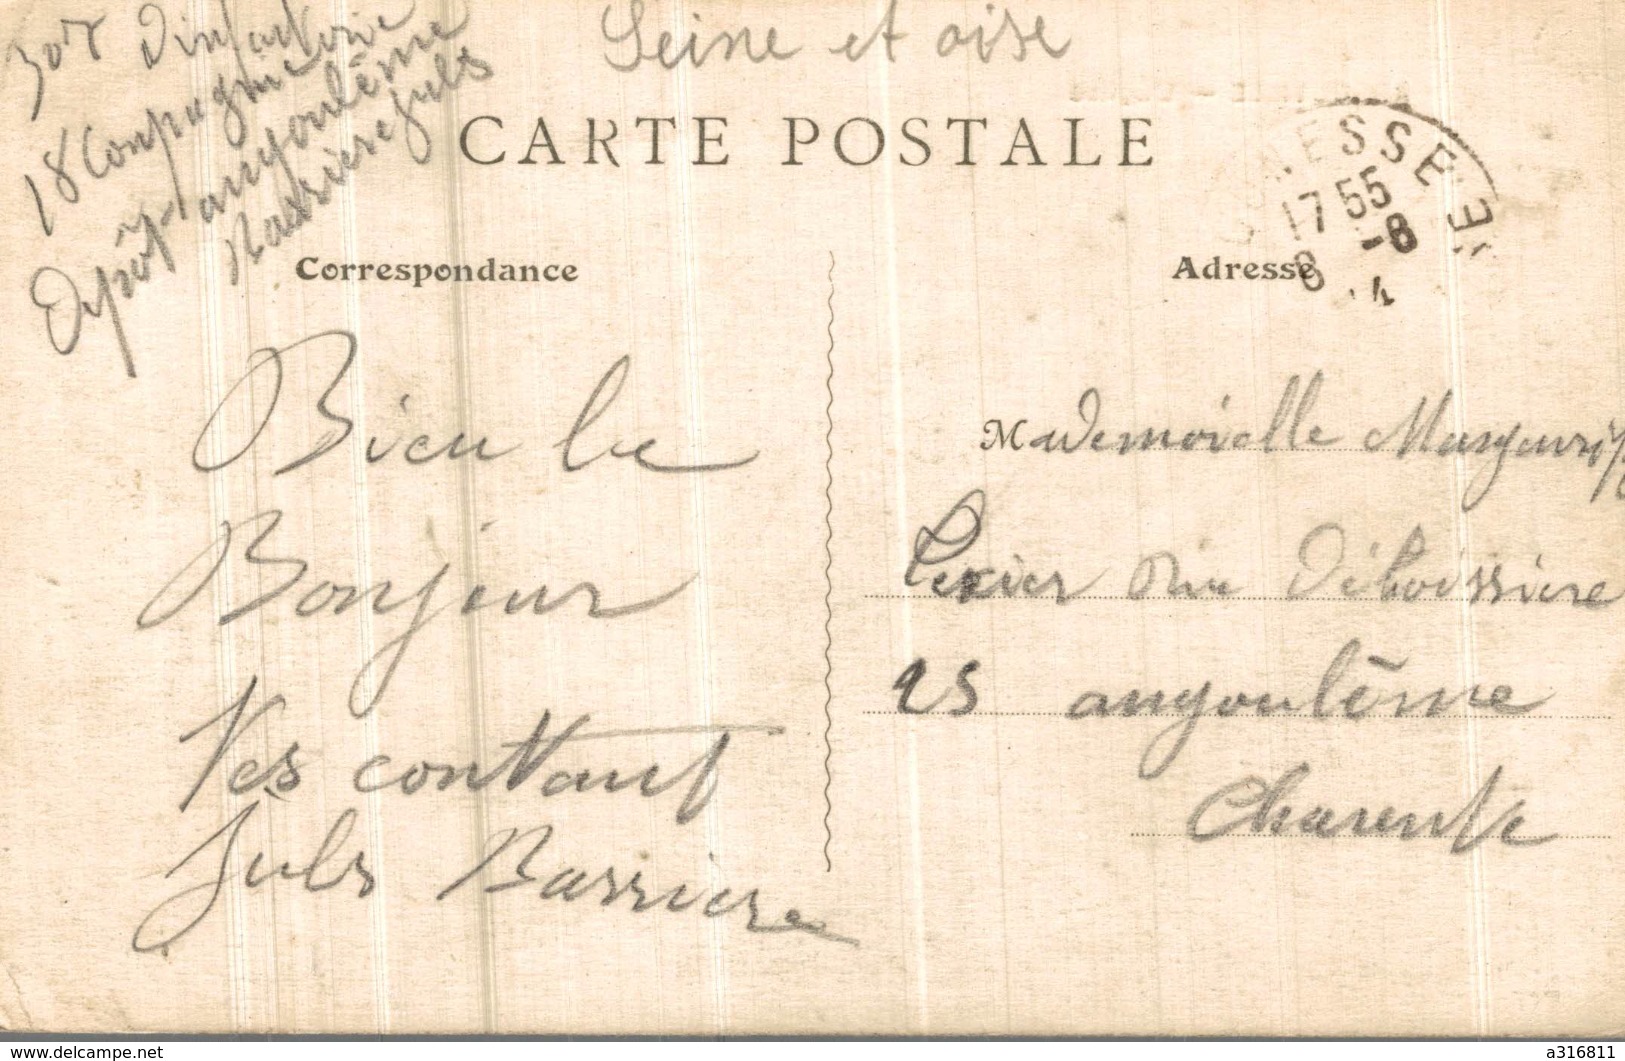 307 Dinfanterie
18 Compagnie
Dépôt angoulême
Barriere Juls
Seine et oise
CARTE POSTALE
ESSE
17 55
8 -8
4
Correspondance
Adresse
Bien le
Bonjour
Ves contant
Juls Barriere
Mademoiselle
Texier Rue Déboissiere
25 angoulême
Charente
a316811